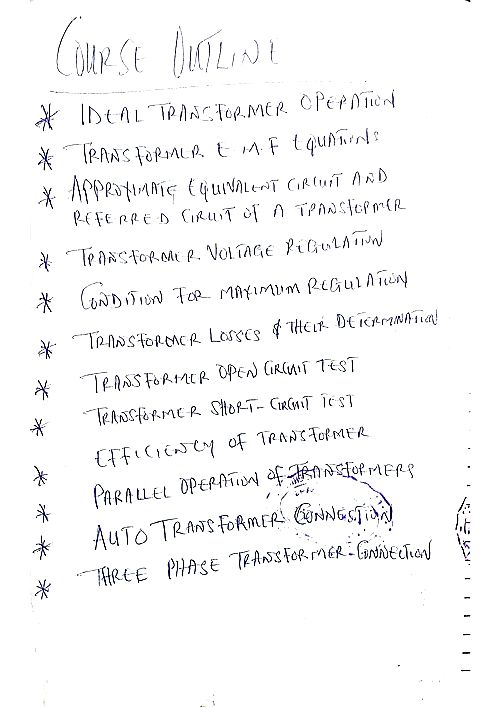 COURSE OUTLINE
* IDEAL TRANSFORMER OPERATION
* TRANSFORMER E.M.F EQUATIONS
* APPROXIMATE EQUIVALENT CIRCUIT AND
REFERRED CIRUIT OF A TRANSFORMER
* TRANSFORMER VOLTAGE REGULATION
* CONDITION FOR MAXIMUM REGULATION
* TRANSFORMER LOSSES & THEIR DETERMINATION
* TRANSFORMER OPEN CIRCUIT TEST
* TRANSFORMER SHORT-CIRCUIT TEST
EFFICIENCY OF TRANSFORMER
* PARALLEL OPERATION OF TRANSFORMERS
* AUTO TRANSFORMER CONNECTION
* THREE PHASE TRANSFORMER-CONNECTION